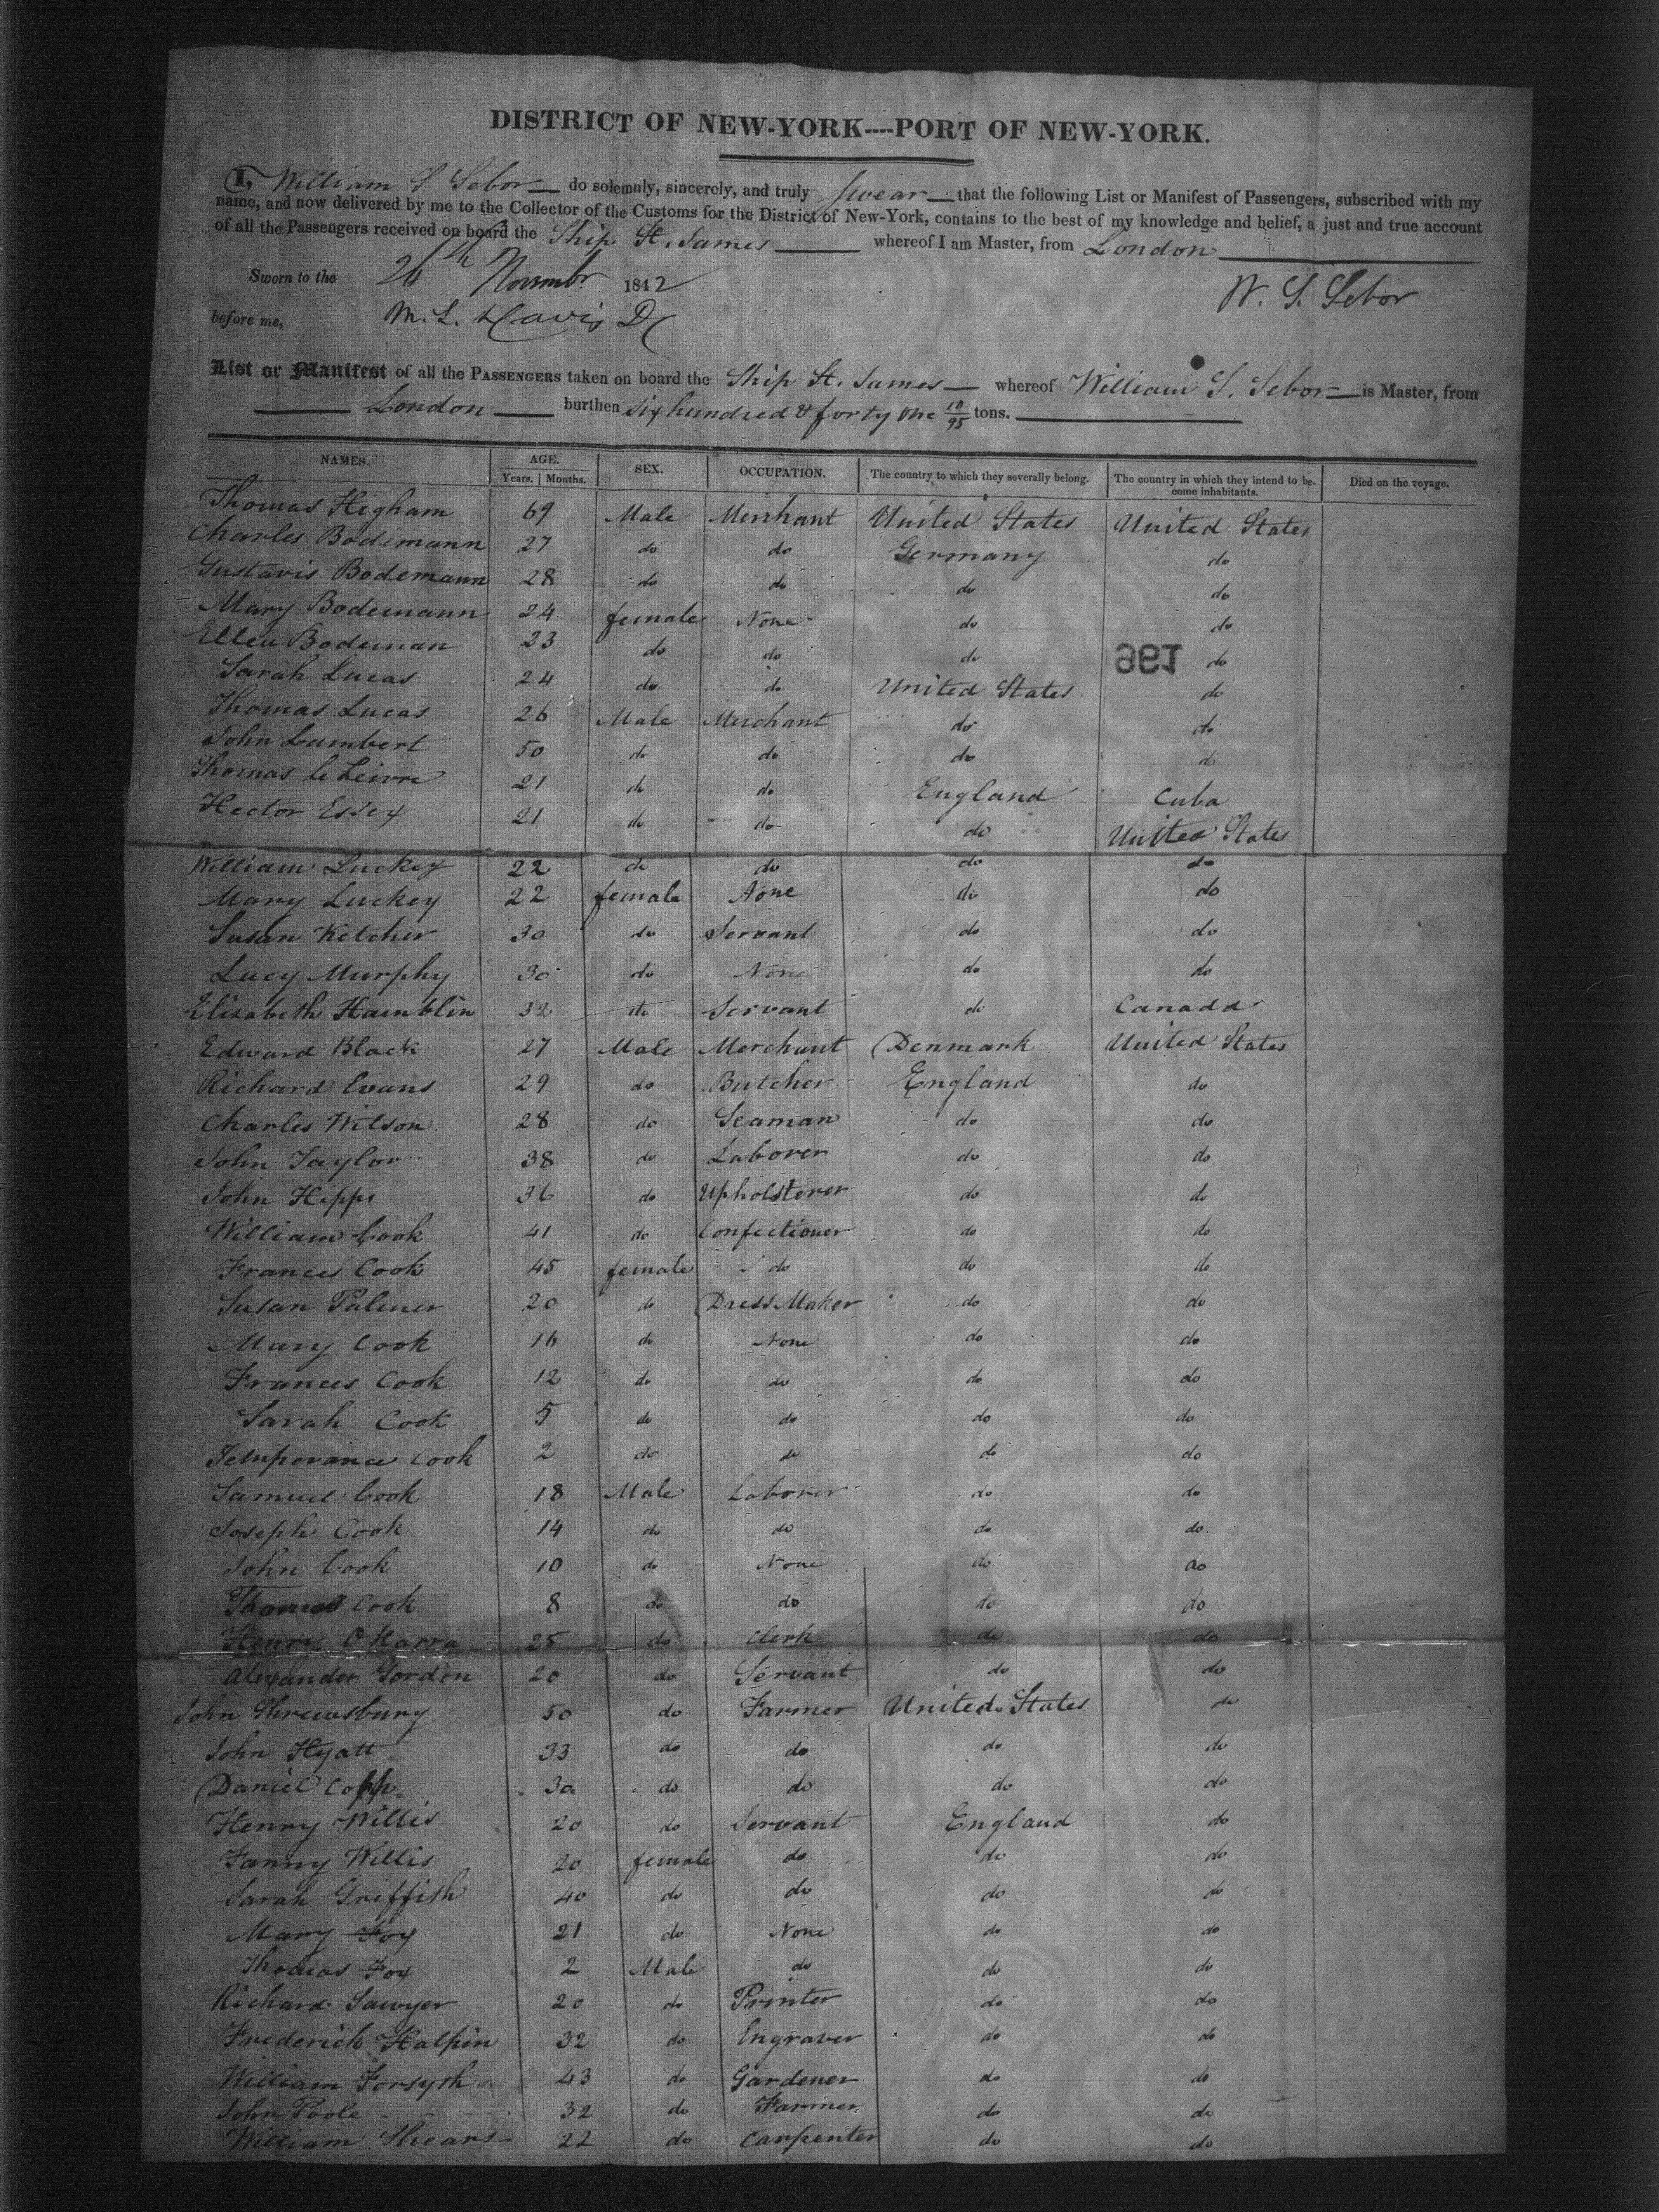 DISTRICT OF NEW-YORK----PORT OF NEW-YORK.
I, William S Sebor do solemnly, sincerely, and truly swear that the following List or Manifest of Passengers, subscribed with my
name, and now delivered by me to the Collector of the Customs for the District of New-York, contains to the best of my knowledge and belief, a just and true account
of all the Passengers received on board the Ship St. James whereof I am Master, from London
Sworn to the 26th Novembr 1842
W. S. Sebor
before me, M. L. Davis DC
List or Manifest of all the PASSENGERS taken on board the Ship St. James whereof William S. Sebor is Master, from
London burthen six hundred & forty one 18/95 tons.
NAMES. AGE. SEX. OCCUPATION. The country to which they severally belong. The country in which they intend to be- Died on the voyage.
Years. | Months. come inhabitants.
Thomas Higham 69 Male Merchant United States United States
Charles Bodemann 27 do do Germany do
Gustavis Bodemann 28 do do do do
Mary Bodemann 24 female None do do
Ellen Bodeman 23 do do do 991 do
Sarah Lucas 24 do do United States do
Thomas Lucas 26 Male Merchant do do
John Lambert 50 do do do do
Thomas le Leivre 21 do do England Cuba
Hector Essex 21 do do do United States
William Luckey 22 do do do do
Mary Luckey 22 female None do do
Susan Ketcher 30 do Servant do do
Lucy Murphy 30 do None do do
Elizabeth Hamblin 32 do Servant do Canada
Edward Black 27 Male Merchant Denmark United States
Richard Evans 29 do Butcher England do
Charles Wilson 28 do Seaman do do
John Taylor 38 do Laborer do do
John Hipps 36 do Upholsterer do do
William Cook 41 do Confectioner do do
Frances Cook 45 female do do do
Susan Palmer 20 do Dress Maker do do
Mary Cook 16 do None do do
Frances Cook 12 do do do do
Sarah Cook 5 do do do do
Temperance Cook 2 do do do do
Samuel Cook 18 Male Laborer do do
Joseph Cook 14 do do do do
John Cook 10 do None do do
Thomas Cook 8 do do do do
Henry O Harra 25 do Clerk do do
Alexander Gordon 20 do Servant do do
John Shrewsbury 50 do Farmer United States do
John Hyatt 33 do do do do
Daniel Copp. 30 do do do do
Henry Willis 20 do Servant England do
Fanny Willis 20 female do do do
Sarah Griffith 40 do do do do
Mary Fox 21 do None do do
Thomas Fox 2 Male do do do
Richard Sawyer 20 do Printer do do
Frederick Halpin 32 do Engraver do do
William Forsyth 43 do Gardener do do
John Poole 32 do Farmer do do
William Shears 22 do Carpenter do do